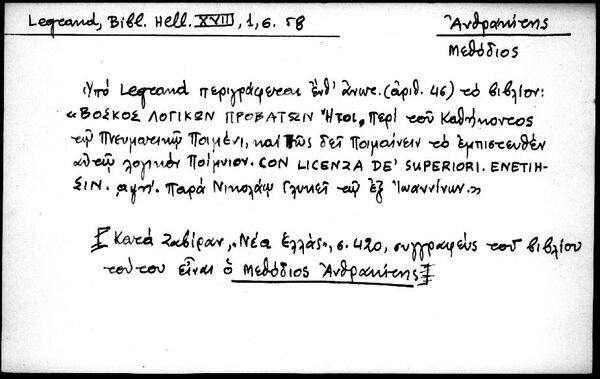 Legrand, Bibl. Hell. XVIII, 1, σ. 58
Ἀνθρακίτης
Μεθόδιος
Ὑπό Legrand περιγράφεται ἔνθ' ἀνωτ. (ἀριθ. 46) τό βιβλίον:
«ΒΟΣΚΟΣ ΛΟΓΙΚΩΝ ΠΡΟΒΑΤΩΝ Ἤτοι, περί τοῦ καθήκοντος
τῷ Πνευματικῷ Ποιμένι, καί Πῶς δεῖ Ποιμαίνειν τό ἐμπιστευθέν
αὐτῷ λογικόν Ποίμνιον. CON LICENZA DE' SUPERIORI. ΕΝΕΤΙΗ-
ΣΙΝ. Παρά Νικολάῳ Γλυκεῖ τῷ ἐξ Ἰωαννίνων.»
[Κατά Ζαβίραν, «Νέα Ἑλλάς», σ. 420, συγγραφεύς τοῦ βιβλίου
τούτου εἶναι ὁ Μεθόδιος Ἀνθρακίτης]